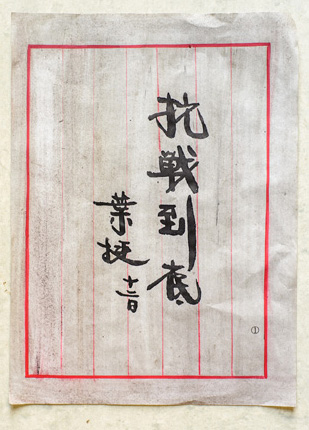 抗戰到底
葉挺
十二日
①